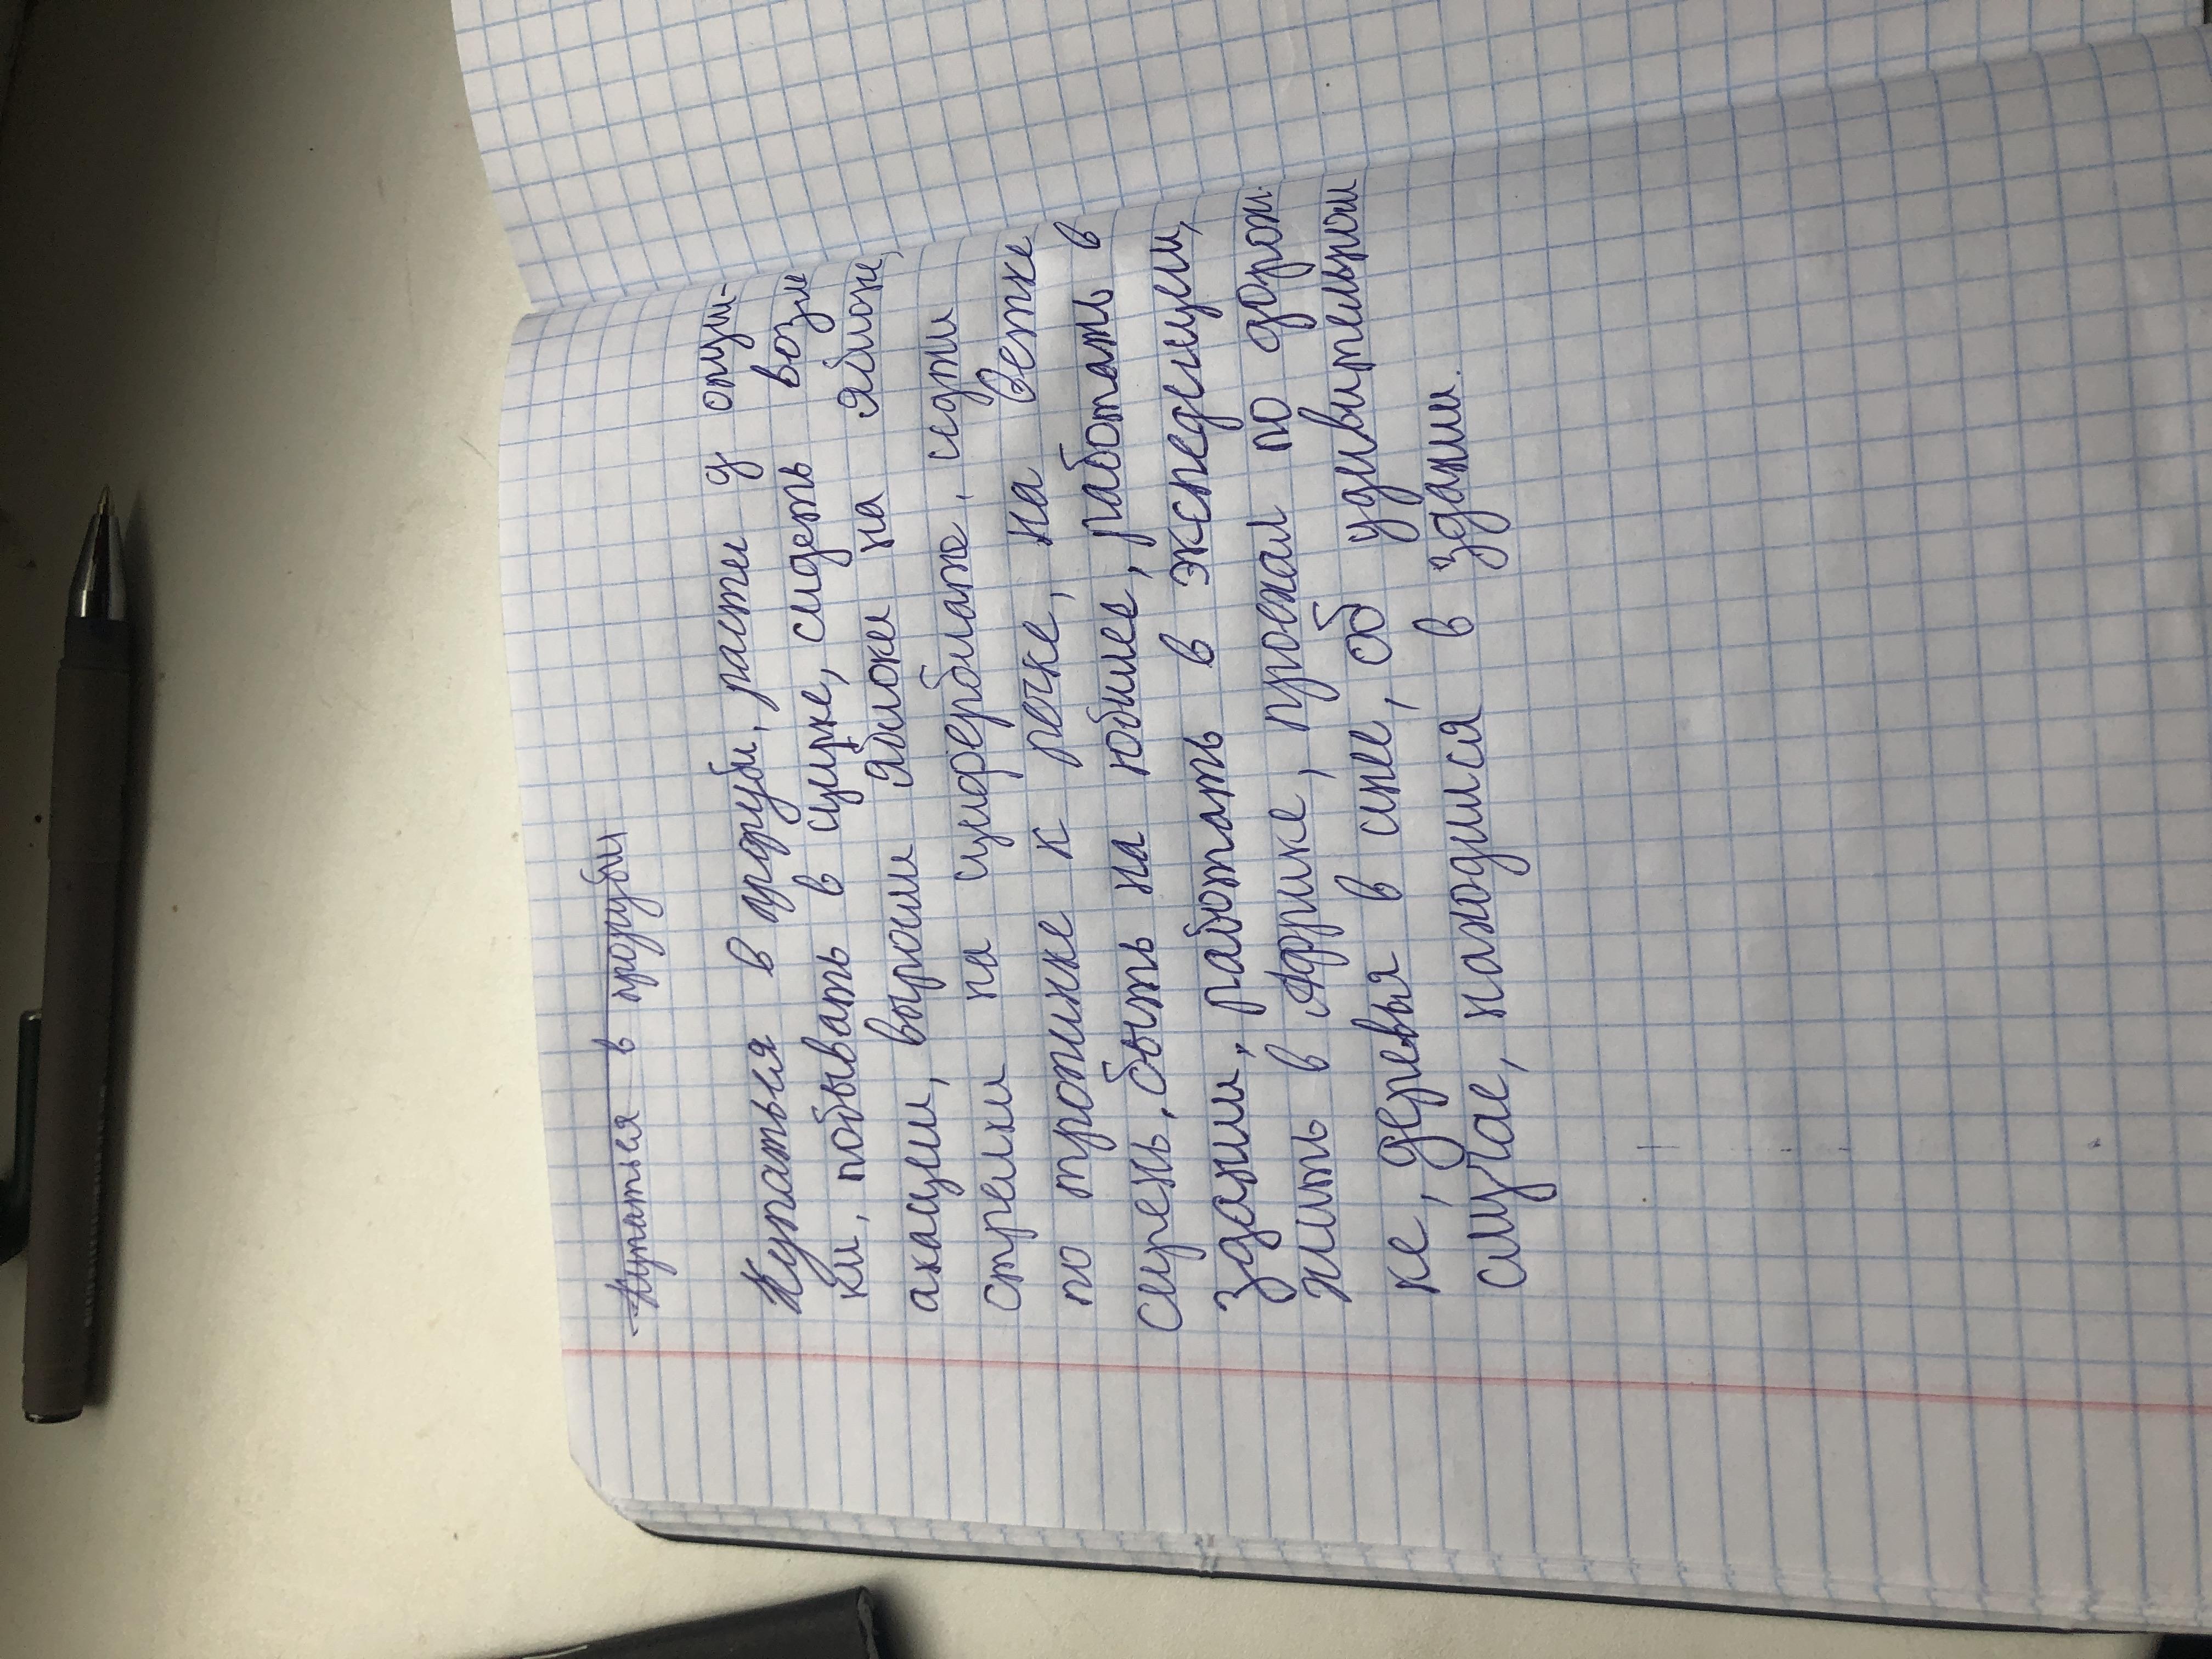 Купаться в прорубы
Купаться в прорубы, расти у опуш-
ки, побывать в цирке, сидеть возле
акации, выросли яблоки на яблоне,
стрелки на циферблате, идти
по тропинке к речке, на ветке
сирень, быть на юбилее, работать в
здании, работать в экспедиции,
жить в Африке, проехал по дорож-
ке, деревья в инее, об удивительном
случае, находился в здании.